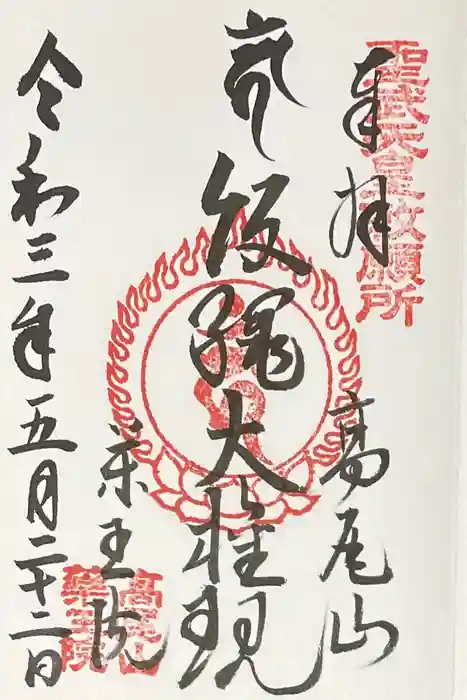 奉拝
聖武天皇敕願所
高尾山
飯縄大権現
薬王院
高尾山薬王院
令和三年五月二十二日